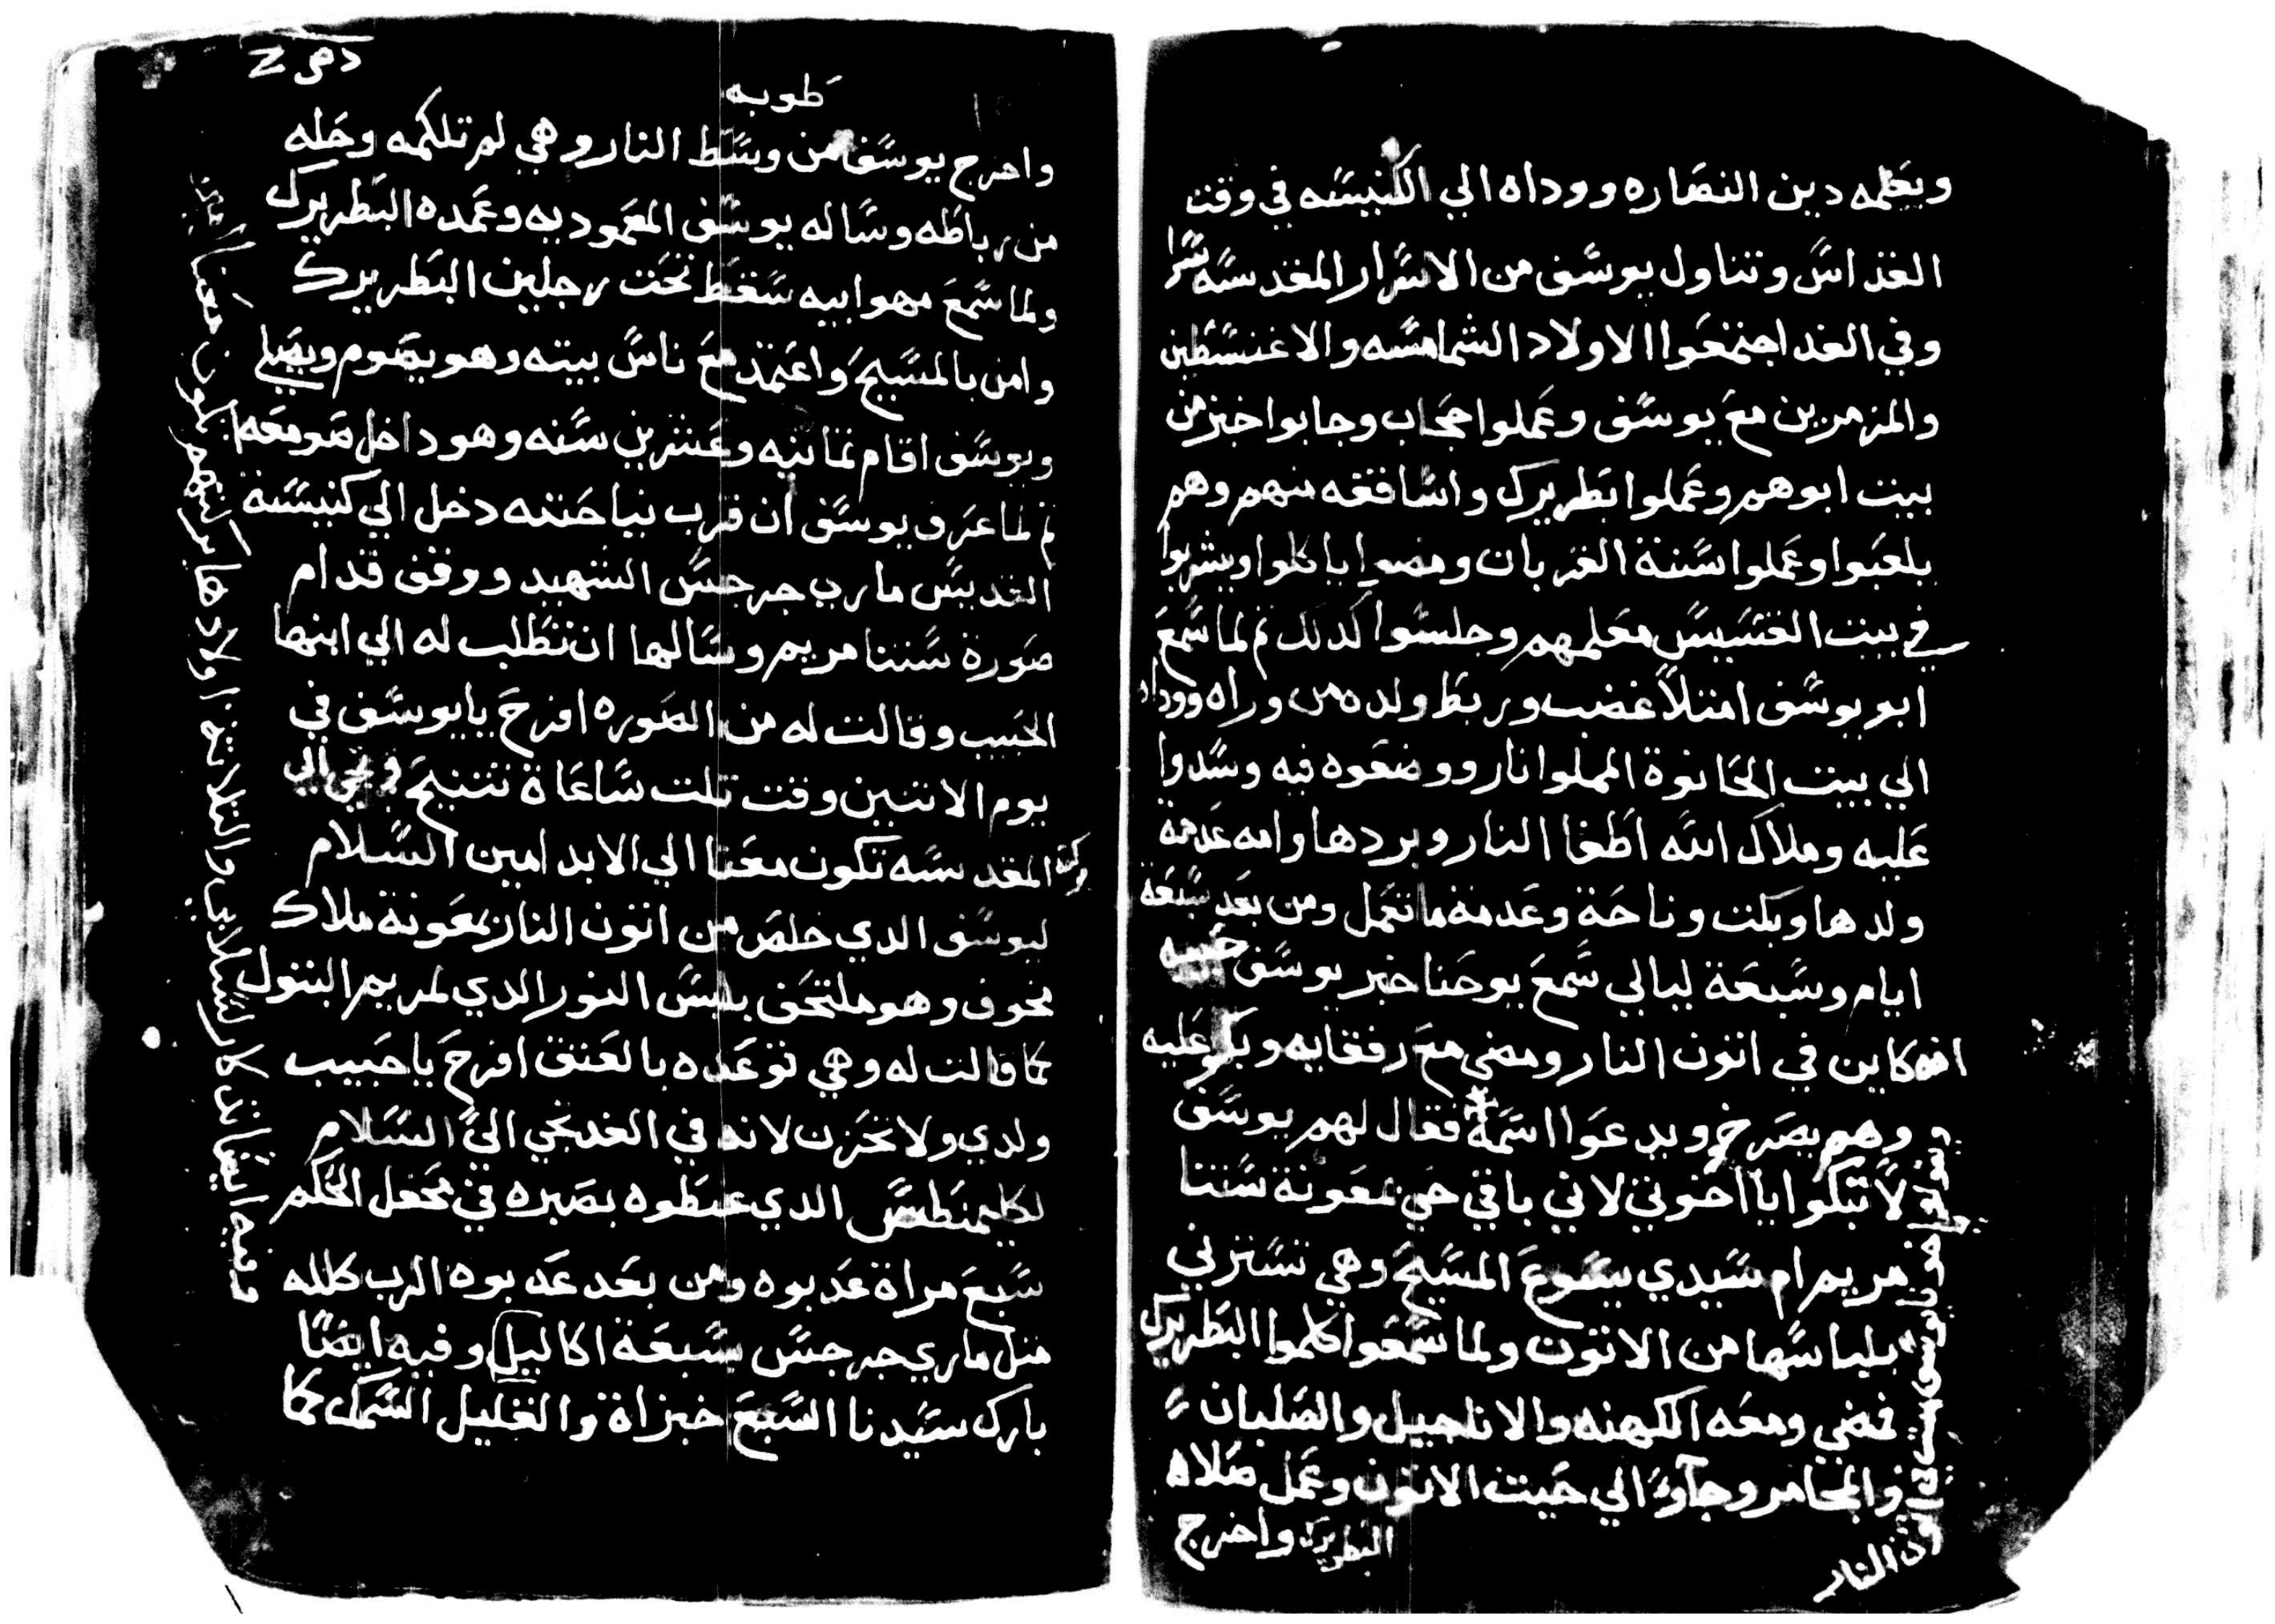 ويعلمه دين النصاره ووداه الي الكنيسه في وقت
القداس وتناول يوسف من الاسرار المقدسه سرا
وفي الغد اجتمعوا الاولاد الشمامسه والاغنسطين
والمزمرين مع يوسف وعملوا حجاب وجابوا خبز من
بيت ابوهم وعملوا بطريرك واساقفه منهم وهم
يلعبوا وعملوا سنة القربان ومضوا ياكلوا ويشربوا
في بيت القسيس معلمهم وجلسوا كدلك تم لما سمع
ابو يوسف امتلأ غضب وربط ولده من وراه ووداه
الي بيت الحانوة المملوا نار ووضعوه فيه وسدوا
عليه وملاك الله اطفا النار وبردها وامه عدمة
ولدها وبكت وناحة وعدمة ما تعمل ومن بعد سبعة
ايام وسبعة ليالي سمع يوحنا خبر يوسف حبيبه
انه كاين في اتون النار ومضى مع رفقايه وبكو عليه
وهم يصرخو ويدعوا اسمه فقال لهم يوسف
لا تبكوا يا اخوتي لاني باقي حي بمعونة ستنا
مريم ام سيدي يسوع المسيح وهي تسترني
بلباسها من الاتون ولما سمعوا كلموا البطريرك
فمضي ومعه الكهنه والاناجيل والصلبان
والمجامر وجآوءا الي حيت الاتون وعمل صلاه
البطريرك واخرج
ويقولوا اخونا يوسف في اتون النار
طوبه
واخرج يوسف من وسط النار وهي لم تلكمه وحله
من رباطه وساله يوسف المعموديه وعمده البطريرك
ولما سمع مهوا ابيه سقط تحت رجلين البطريرك
وامن بالمسيح واعتمد مع ناس بيته وهو يصوم ويصلي
ويوسف اقام تمانيه وعشرين سنه وهو داخل صومعه
تم لما عرف يوسف ان قرب نياحته دخل الي كنيسة
القديس ماري جرجس الشهيد ووقف قدام
صورة ستنا مريم وسالها ان تطلب له الي ابنها
الحبيب وقالت له من الصوره افرح يا يوسف في
يوم الاتنين وقت تلت ساعاة تتنيح وتجي الي
بركته المقدسه تكون معنا الي الابد امين السلام
ليوسف الدي خلص من اتون النار بمعونة ملاك
مخوف وهو ملتحف بلبس النور الدي لمريم البتول
كما قالت له وهي توعده بالعتق افرح يا حبيب
ولدي ولا تحزن لانك في الغد تجي اليّ السلام
لكليمنطس الدي عبطوه بصبره في محفل الحكم
سبع مراة عدبوه ومن بعد عدبوه الرب كلله
متل ماري جرجس بسبعة اكاليل وفيه ايضًا
بارك سيدنا السبع خبزاة والقليل السمك كما
وفيه ايضًا تدكار والتلاتة اولادها بركتهم تكون معنا امين